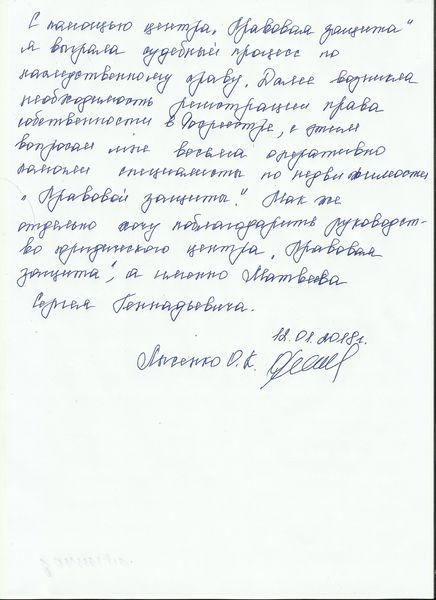 С помощью центра „Правовая защита"
я выграла судебный процесс по
наследственному праву. Далее возникла
необходимость регистрации права
собственности в Росреестре, с этим
вопросом мне весьма оперативно
помогли специалисты по недвижимости
„Правовой защиты". Так же
отдельно хочу поблагодарить руководст-
во юридического центра „Правовая
защита", а именно Матвеева
Сергея Геннадьевича.
12.01.2018г.
Лысенко О.К.